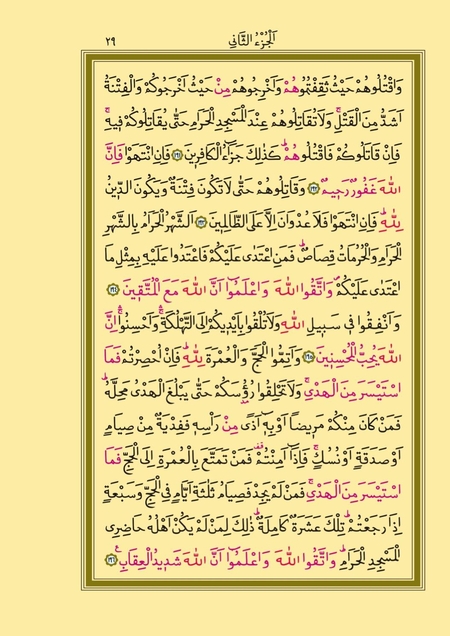 ٢٩ اَلْجُزْءُ الثَّانِي
وَاقْتُلُوهُمْ حَيْثُ ثَقِفْتُمُوهُمْ وَاَخْرِجُوهُمْ مِنْ حَيْثُ اَخْرَجُوكُمْ وَالْفِتْنَةُ
اَشَدُّ مِنَ الْقَتْلِۚ وَلَا تُقَاتِلُوهُمْ عِنْدَ الْمَسْجِدِ الْحَرَامِ حَتّٰى يُقَاتِلُوكُمْ ف۪يهِۚ
فَاِنْ قَاتَلُوكُمْ فَاقْتُلُوهُمْۜ كَذٰلِكَ جَزَٓاءُ الْكَافِر۪ينَ ﴿١٩١﴾ فَاِنِ انْتَهَوْا فَاِنَّ
اللّٰهَ غَفُورٌ رَح۪يمٌ ﴿١٩٢﴾ وَقَاتِلُوهُمْ حَتّٰى لَا تَكُونَ فِتْنَةٌ وَيَكُونَ الدّ۪ينُ
لِلّٰهِۜ فَاِنِ انْتَهَوْا فَلَا عُدْوَانَ اِلَّا عَلَى الظَّالِم۪ينَ ﴿١٩٣﴾ اَلشَّهْرُ الْحَرَامُ بِالشَّهْرِ
الْحَرَامِ وَالْحُرُمَاتُ قِصَاصٌۜ فَمَنِ اعْتَدٰى عَلَيْكُمْ فَاعْتَدُوا عَلَيْهِ بِمِثْلِ مَا
اعْتَدٰى عَلَيْكُمْۖ وَاتَّقُوا اللّٰهَ وَاعْلَمُٓوا اَنَّ اللّٰهَ مَعَ الْمُتَّق۪ينَ ﴿١٩٤﴾
وَاَنْفِقُوا ف۪ي سَب۪يلِ اللّٰهِ وَلَا تُلْقُوا بِاَيْد۪يكُمْ اِلَى التَّهْلُكَةِۚۛ وَاَحْسِنُواۚۛ اِنَّ
اللّٰهَ يُحِبُّ الْمُحْسِن۪ينَ ﴿١٩٥﴾ وَاَتِمُّوا الْحَجَّ وَالْعُمْرَةَ لِلّٰهِۜ فَاِنْ اُحْصِرْتُمْ فَمَا
اسْتَيْسَرَ مِنَ الْهَدْيِۚ وَلَا تَحْلِقُوا رُؤُ۫سَكُمْ حَتّٰى يَبْلُغَ الْهَدْيُ مَحِلَّهُۜ
فَمَنْ كَانَ مِنْكُمْ مَر۪يضًا اَوْ بِه۪ٓ اَذًى مِنْ رَأْسِه۪ فَفِدْيَةٌ مِنْ صِيَامٍ
اَوْ صَدَقَةٍ اَوْ نُسُكٍۚ فَاِذَٓا اَمِنْتُمْ۠ فَمَنْ تَمَتَّعَ بِالْعُمْرَةِ اِلَى الْحَجِّ فَمَا
اسْتَيْسَرَ مِنَ الْهَدْيِۚ فَمَنْ لَمْ يَجِدْ فَصِيَامُ ثَلٰثَةِ اَيَّامٍ فِي الْحَجِّ وَسَبْعَةٍ
اِذَا رَجَعْتُمْۜ تِلْكَ عَشَرَةٌ كَامِلَةٌۜ ذٰلِكَ لِمَنْ لَمْ يَكُنْ اَهْلُهُ حَاضِرِي
الْمَسْجِدِ الْحَرَامِۜ وَاتَّقُوا اللّٰهَ وَاعْلَمُٓوا اَنَّ اللّٰهَ شَد۪يدُ الْعِقَابِ۟ ﴿١٩٦﴾